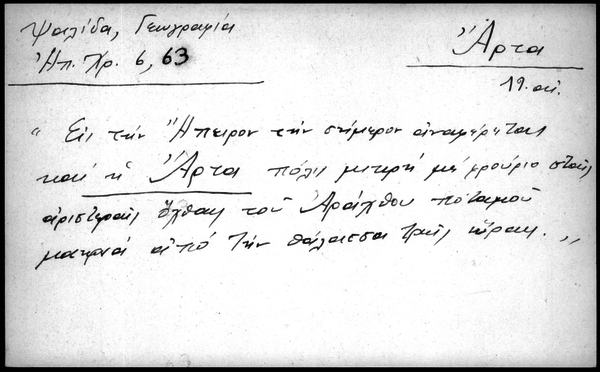 Ψαλίδα, Γεωγραφία
Ἠπ. Χρ. 6, 63
Ἄρτα
19. αἰ.
„ Εἰς τὴν Ἤπειρον τὴν σήμερον ἀναφέρεται
καὶ ἡ Ἄρτα πόλη μικρή μὲ φρούριο στὰς
ἀριστερὰς ὄχθας τοῦ Ἀράχθου ποταμοῦ
μακρυὰ ἀπό τὴν θάλασσα τρεῖς ὥρας. „